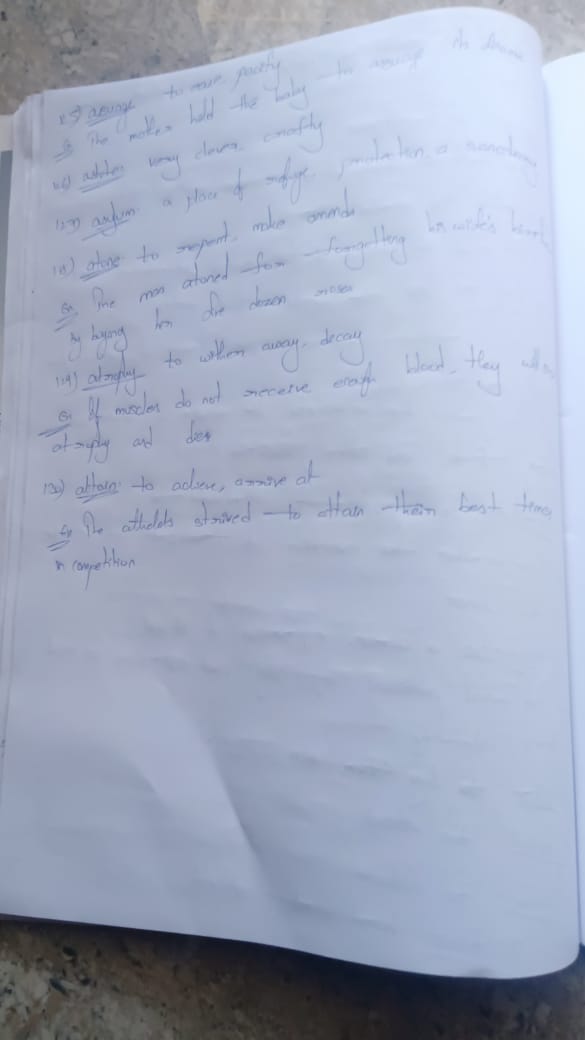 125) assuage to ease, pacify
Ex The mother held the baby to assuage its
126) astute very clever, crafty
127) asylum: a place of refuge, protection, a sanctuary
128) atone to repent, make amends
Ex The man atoned for forgetting his wife's
by buying her five dozen roses
129) atrophy to wither away, decay
Ex If muscles do not receive enough blood, they will
atrophy and die
130) attain: to achieve, arrive at
Ex The strived to attain their best times
in competition